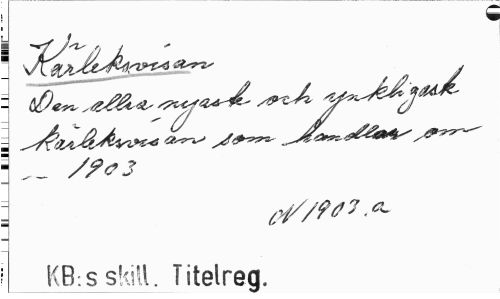 Kärleksvisan
Den allra nyaste och ynkligast
kärleksvisan som handlar om
-- 1903
N 1903.a
KB:s skill. Titelreg.